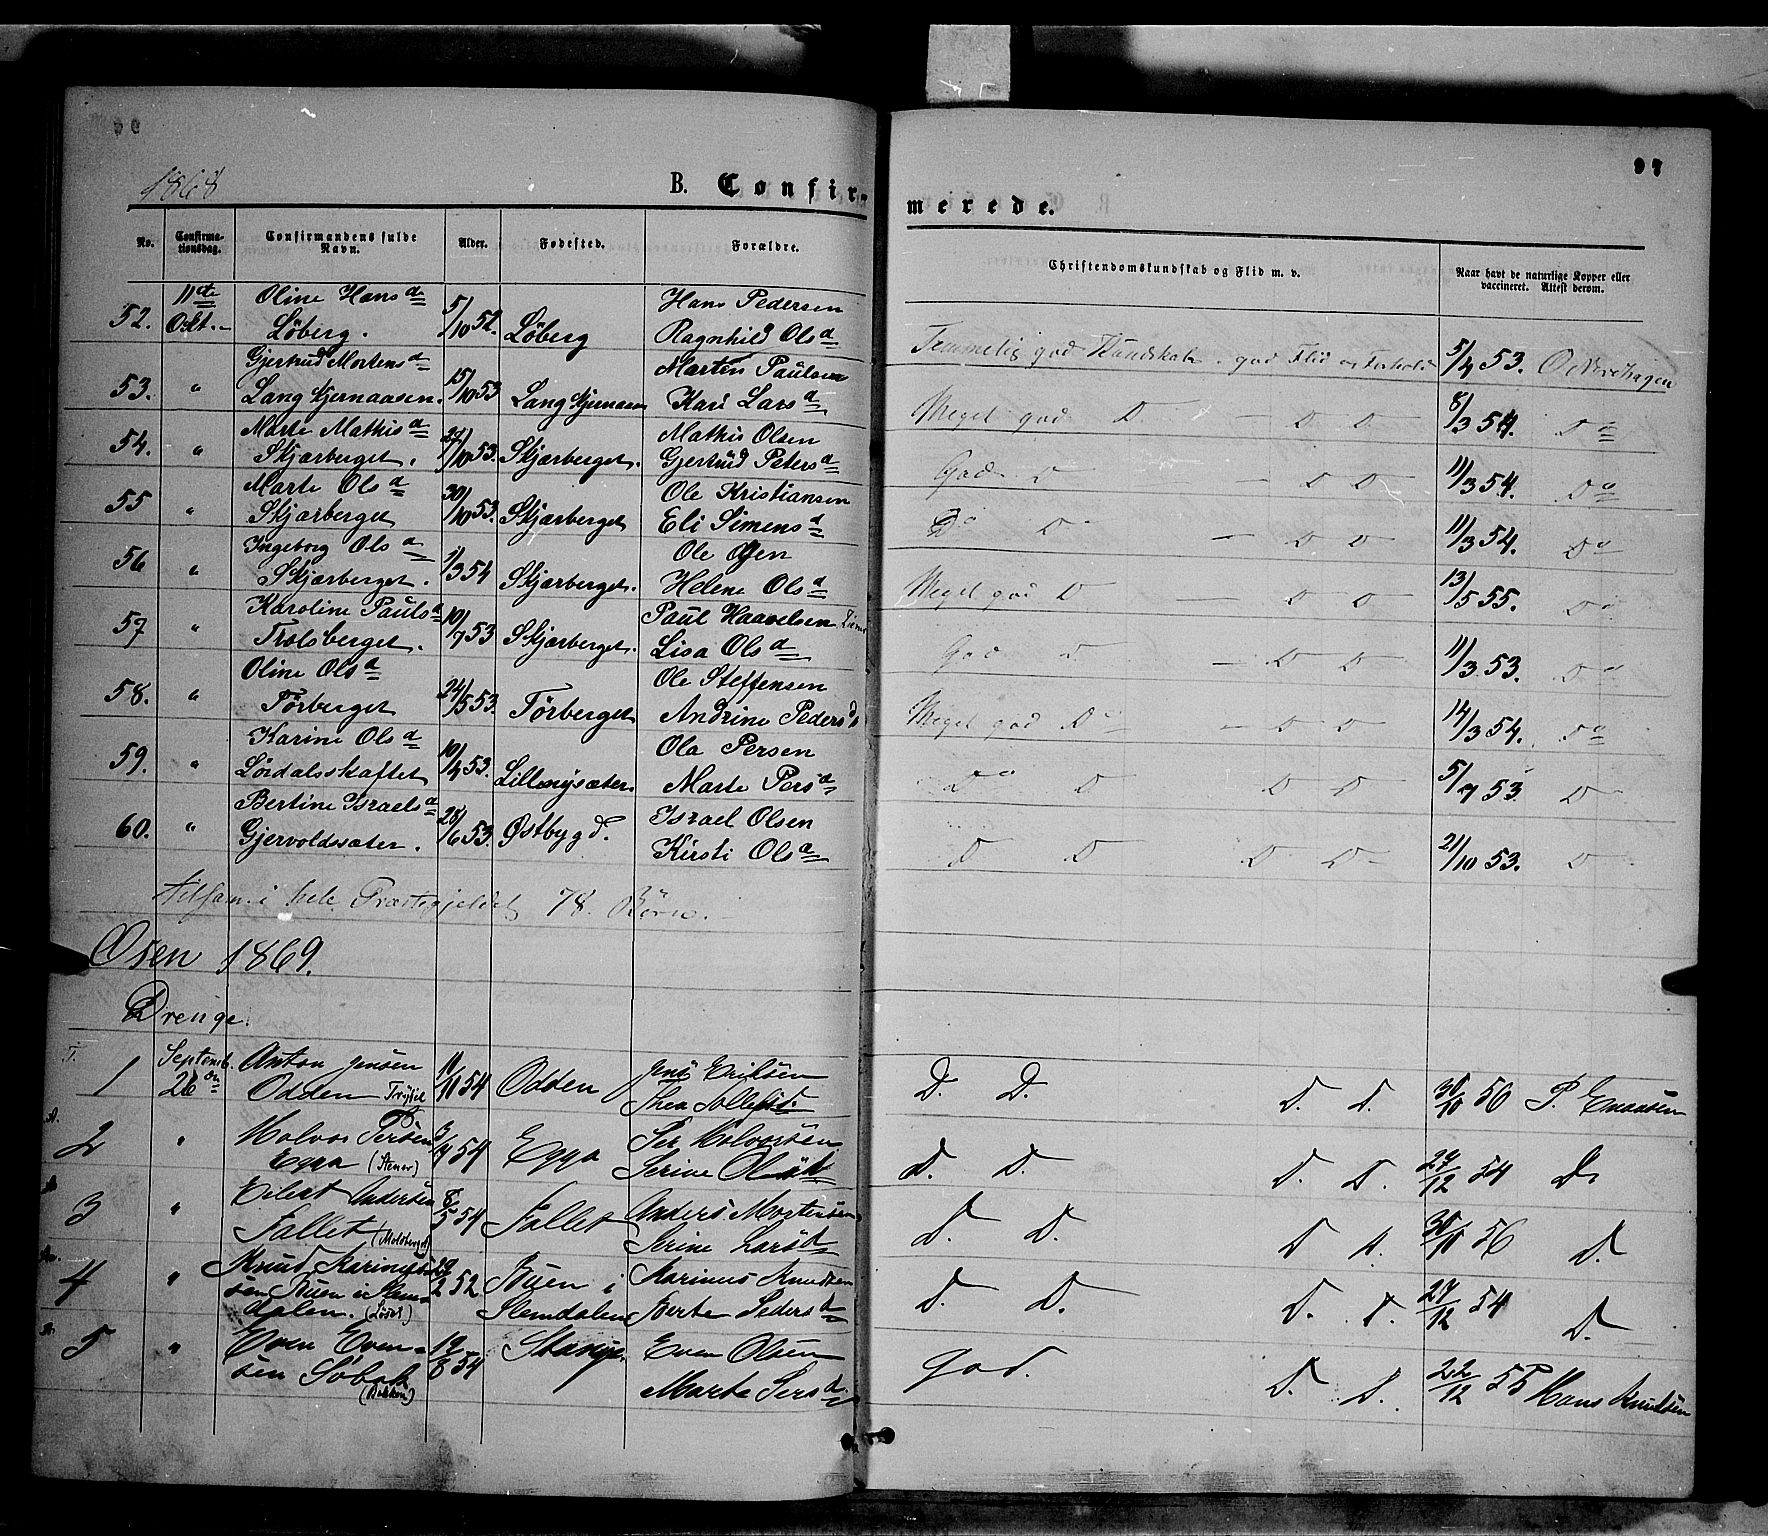 1868
B. Confirmerede.
97
No.
Confirmationsdag.
Confirmandens fulde Navn.
Alder.
Fødested.
Forældre.
Christendomskundskab og Flid m. v.
Naar havt de naturlige Kopper eller vaccineret. Attest derom.
52. 11te Okt. Oline Hansd Løberg. 5/10 52. Løberg Hans Pedersen Ragnhild Olsd Temmelig god Kundskab. god Flid og Forhold 5/4 53.
53. " Gjertrud Mortensd Langkjernaasen. 15/10 53 Langkjernaasen Marten Paulsen Kari Larsd Meget god D. — D D 8/3 54. Do
54. " Marte Mathisd Skjærberget. 10 53. Skjærberget. Mathis Olsen Gjertrud Petersd God D — D D 11/3 54. Do
55 " Marte Olsd Skjærberget 30/10 53. Skjærberget Ole Kristiansen Eli Simensd Do Do — D D 11/3 54. Do
56 " Ingeborg Olsd Skjærberget. 11/3 54 Skjærberget. Ole Helene Olsd Meget god D — D D 13/5 55. Do
57 " Karoline Paulsd Trolsberget. 10/7 53 Skjærberget. Paul Haavelsen Lisa Olsd God D — D D 11/3 53. Do
58. " Oline Olsd Førberget 24/5 53. Førberget Ole Steffensen Andrine Pedersd Meget god Do — D D 14/3 54. Do
59. " Karine Olsd Lørdalsskaftet 10/4 53. Lillenysæter Ola Persen Marte Persd Do D D D 5/7 53 D
60. " Bertine Israelsd Gjervoldssæter. 28/6 53. Østbygd. Israel Olsen Kirsti Olsd D D D D 21/10 53. D
tilsam. i hele Præstegjeldet 78. Børn.
Osen 1869.
Drenge.
T. 1 Septemb. 26de Anton Jensen Odden Trysil 11/11 54 Odden Jens Eriksen Thea Tollefsd. D. D. D. D. 30/10 56 P. Enaasen
2 " Halvor Persen Egga (Stener) 3/4 54 Egga Per Halvorsen Serine Olsd D. D. D. D. 27/12 54 D.
3 " Eilert Andersen Fallet 8/5 54 Fallet Anders Mortensen Serine Larsd D. D. D D. 30/10 56 D.
4 " Knud Karinusen Buen i Slemdalen. 29/2 52 Buen i Slemdalen Karinus Knudsen Berte Pedersd D. D. D. D. 27/12 54 D.
5 " Even Evensen Søbak (Bakken) 19/8 54 Stange. Even Olsen Marte Persd. God. D. D. 22/12 55 Hans Knudsen